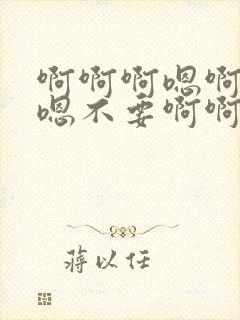 啊啊啊嗯啊
嗯不要啊啊
蒋以任